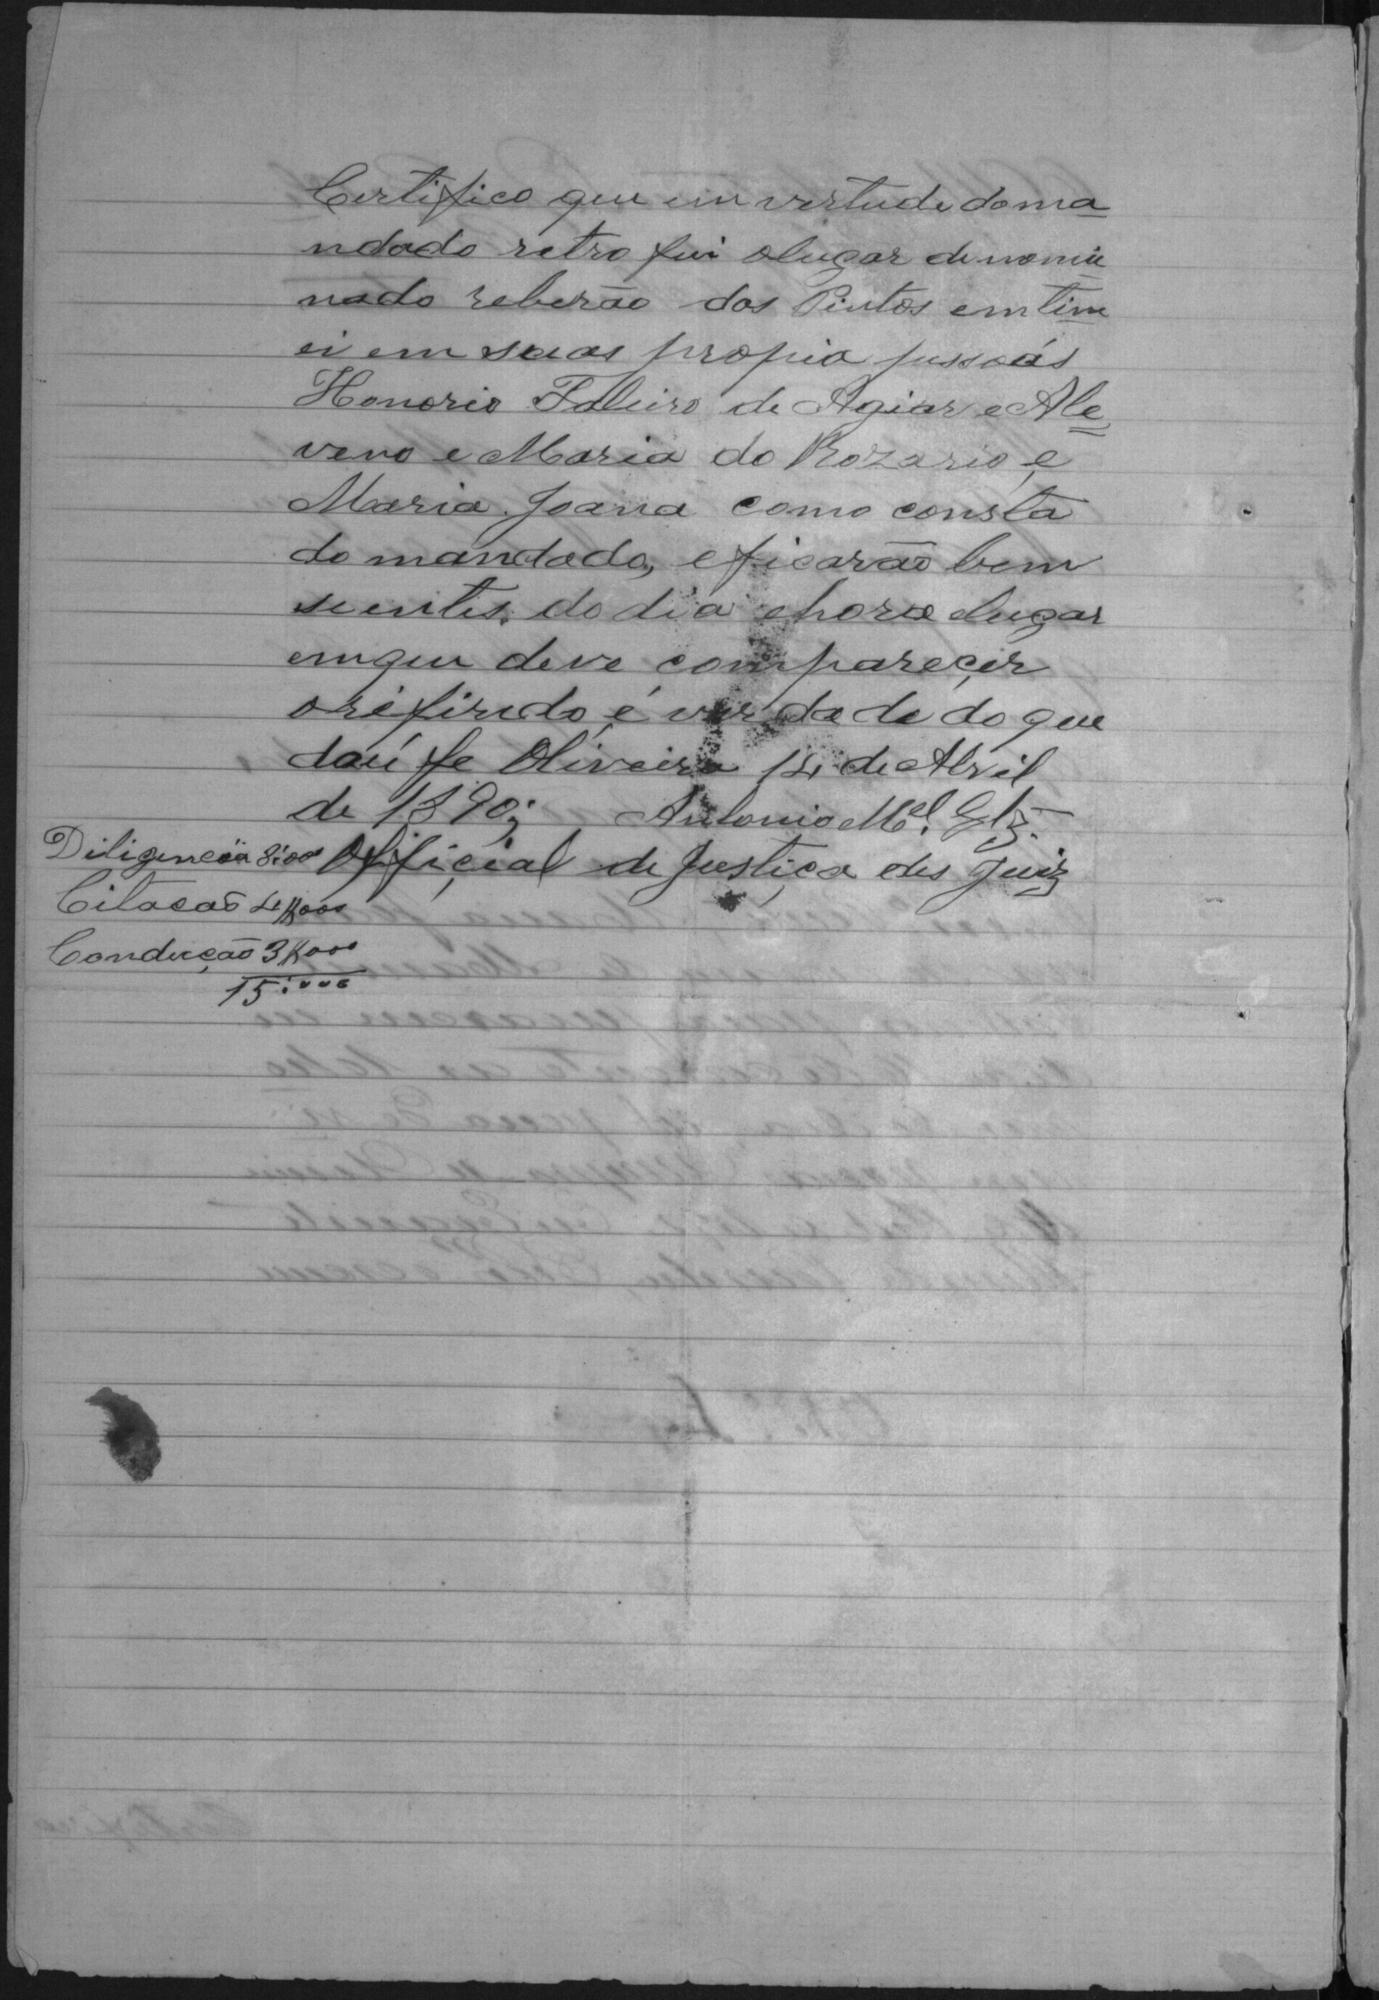 Certifico que em vertude doma
ndado retro fui olugar denomi
nado reberão dos Pintos emtim
ei em suas propia pessoás
Honorio Faleiro de Agiar e Ale
veno e Maria do Rozario, e
Maria Joana como consta
do mandado, eficarão bem
sientes, do dia ehora elugar
emque deve compareçer
orefirido, é verdade do que
daú fe Oliveira 14 de Abril
de 1890; Antonio Mel. Glz.
Diligencia 8:000 Ofiçial de Justiça des Juiz
Citacaõ 4$000
Conducção 3$000
15:000